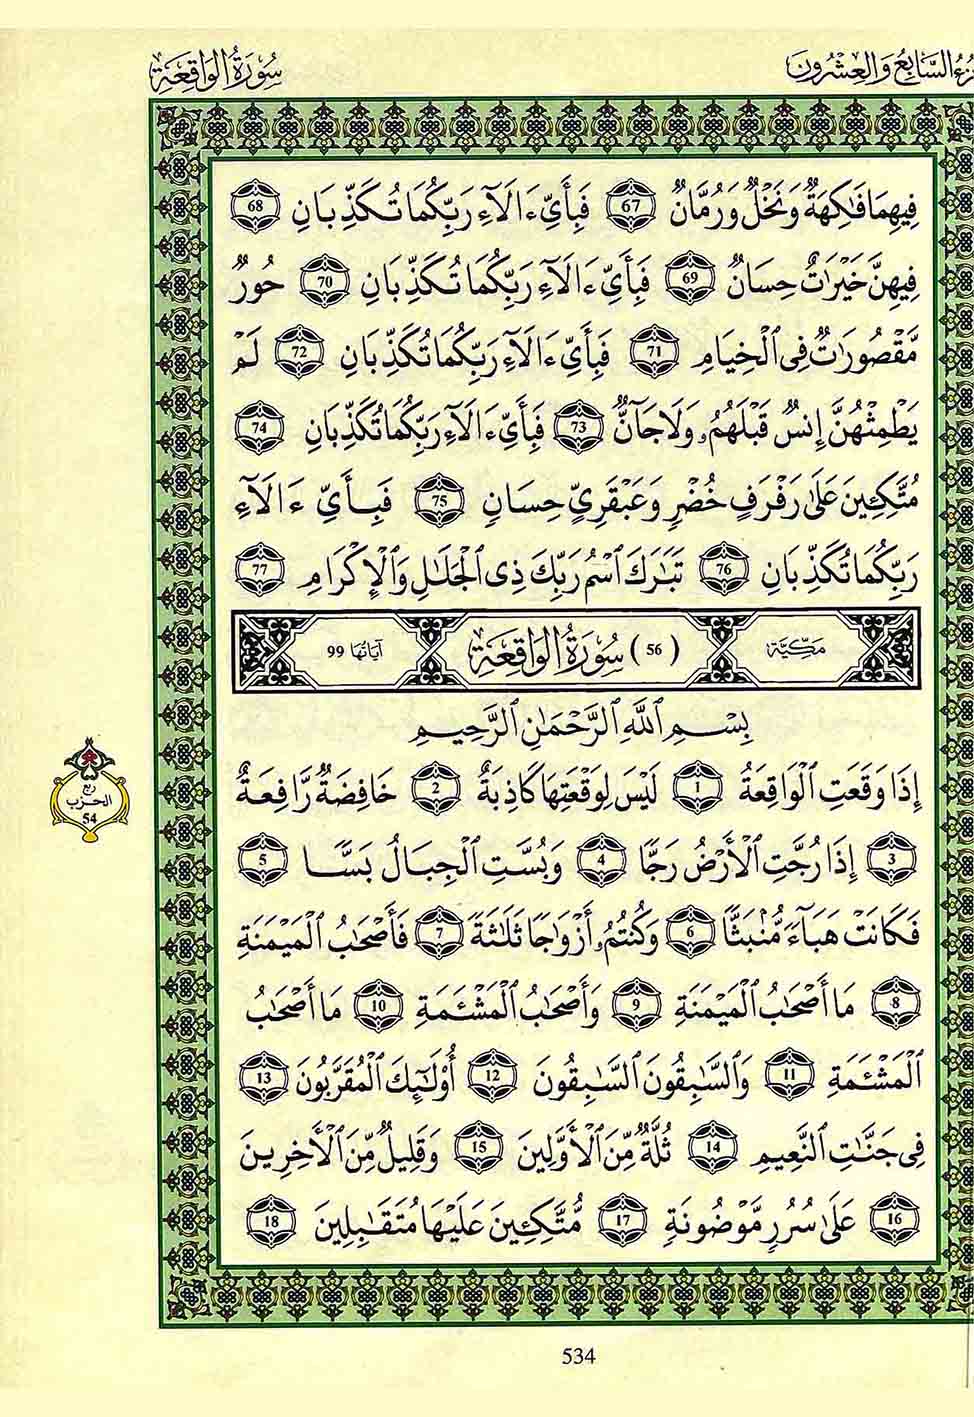 ـزءُ السَّابِعُ وَالعِشْرُونَ سُورَةُ الوَاقِعَة
فِيهِمَا فَٰكِهَةٌ وَنَخْلٌ وَرُمَّانٌ 67 فَبِأَيِّ ءَالَآءِ رَبِّكُمَا تُكَذِّبَانِ 68
فِيهِنَّ خَيْرَٰتٌ حِسَانٌ 69 فَبِأَيِّ ءَالَآءِ رَبِّكُمَا تُكَذِّبَانِ 70 حُورٌ
مَّقْصُورَٰتٌ فِى ٱلْخِيَامِ 71 فَبِأَيِّ ءَالَآءِ رَبِّكُمَا تُكَذِّبَانِ 72 لَمْ
يَطْمِثْهُنَّ إِنسٌ قَبْلَهُمُۥ وَلَا جَآنٌّ 73 فَبِأَيِّ ءَالَآءِ رَبِّكُمَا تُكَذِّبَانِ 74
مُتَّكِـِٔينَ عَلَىٰ رَفْرَفٍ خُضْرٍ وَعَبْقَرِىٍّ حِسَانٍ 75 فَبِأَيِّ ءَالَآءِ
رَبِّكُمَا تُكَذِّبَانِ 76 تَبَٰرَكَ ٱسْمُ رَبِّكَ ذِى ٱلْجَلَٰلِ وَٱلْإِكْرَامِ 77
مَكِّيَّة (56) سُورَةُ الوَاقِعَة آيَاتُهَا 99
بِسْمِ ٱللَّهِ ٱلرَّحْمَٰنِ ٱلرَّحِيمِ
إِذَا وَقَعَتِ ٱلْوَاقِعَةُ 1 لَيْسَ لِوَقْعَتِهَا كَاذِبَةٌ 2 خَافِضَةٌ رَّافِعَةٌ
3 إِذَا رُجَّتِ ٱلْأَرْضُ رَجًّا 4 وَبُسَّتِ ٱلْجِبَالُ بَسًّا 5
فَكَانَتْ هَبَآءً مُّنۢبَثًّا 6 وَكُنتُمُۥ أَزْوَٰجًا ثَلَٰثَةً 7 فَأَصْحَٰبُ ٱلْمَيْمَنَةِ
8 مَا أَصْحَٰبُ ٱلْمَيْمَنَةِ 9 وَأَصْحَٰبُ ٱلْمَشْـَٔمَةِ 10 مَا أَصْحَٰبُ
ٱلْمَشْـَٔمَةِ 11 وَٱلسَّٰبِقُونَ ٱلسَّٰبِقُونَ 12 أُوْلَٰٓئِكَ ٱلْمُقَرَّبُونَ 13
فِى جَنَّٰتِ ٱلنَّعِيمِ 14 ثُلَّةٌ مِّنَ ٱلْأَوَّلِينَ 15 وَقَلِيلٌ مِّنَ ٱلْأَخِرِينَ
16 عَلَىٰ سُرُرٍ مَّوْضُونَةٍ 17 مُّتَّكِـِٔينَ عَلَيْهَا مُتَقَٰبِلِينَ 18
ربع
الحزب
54
534